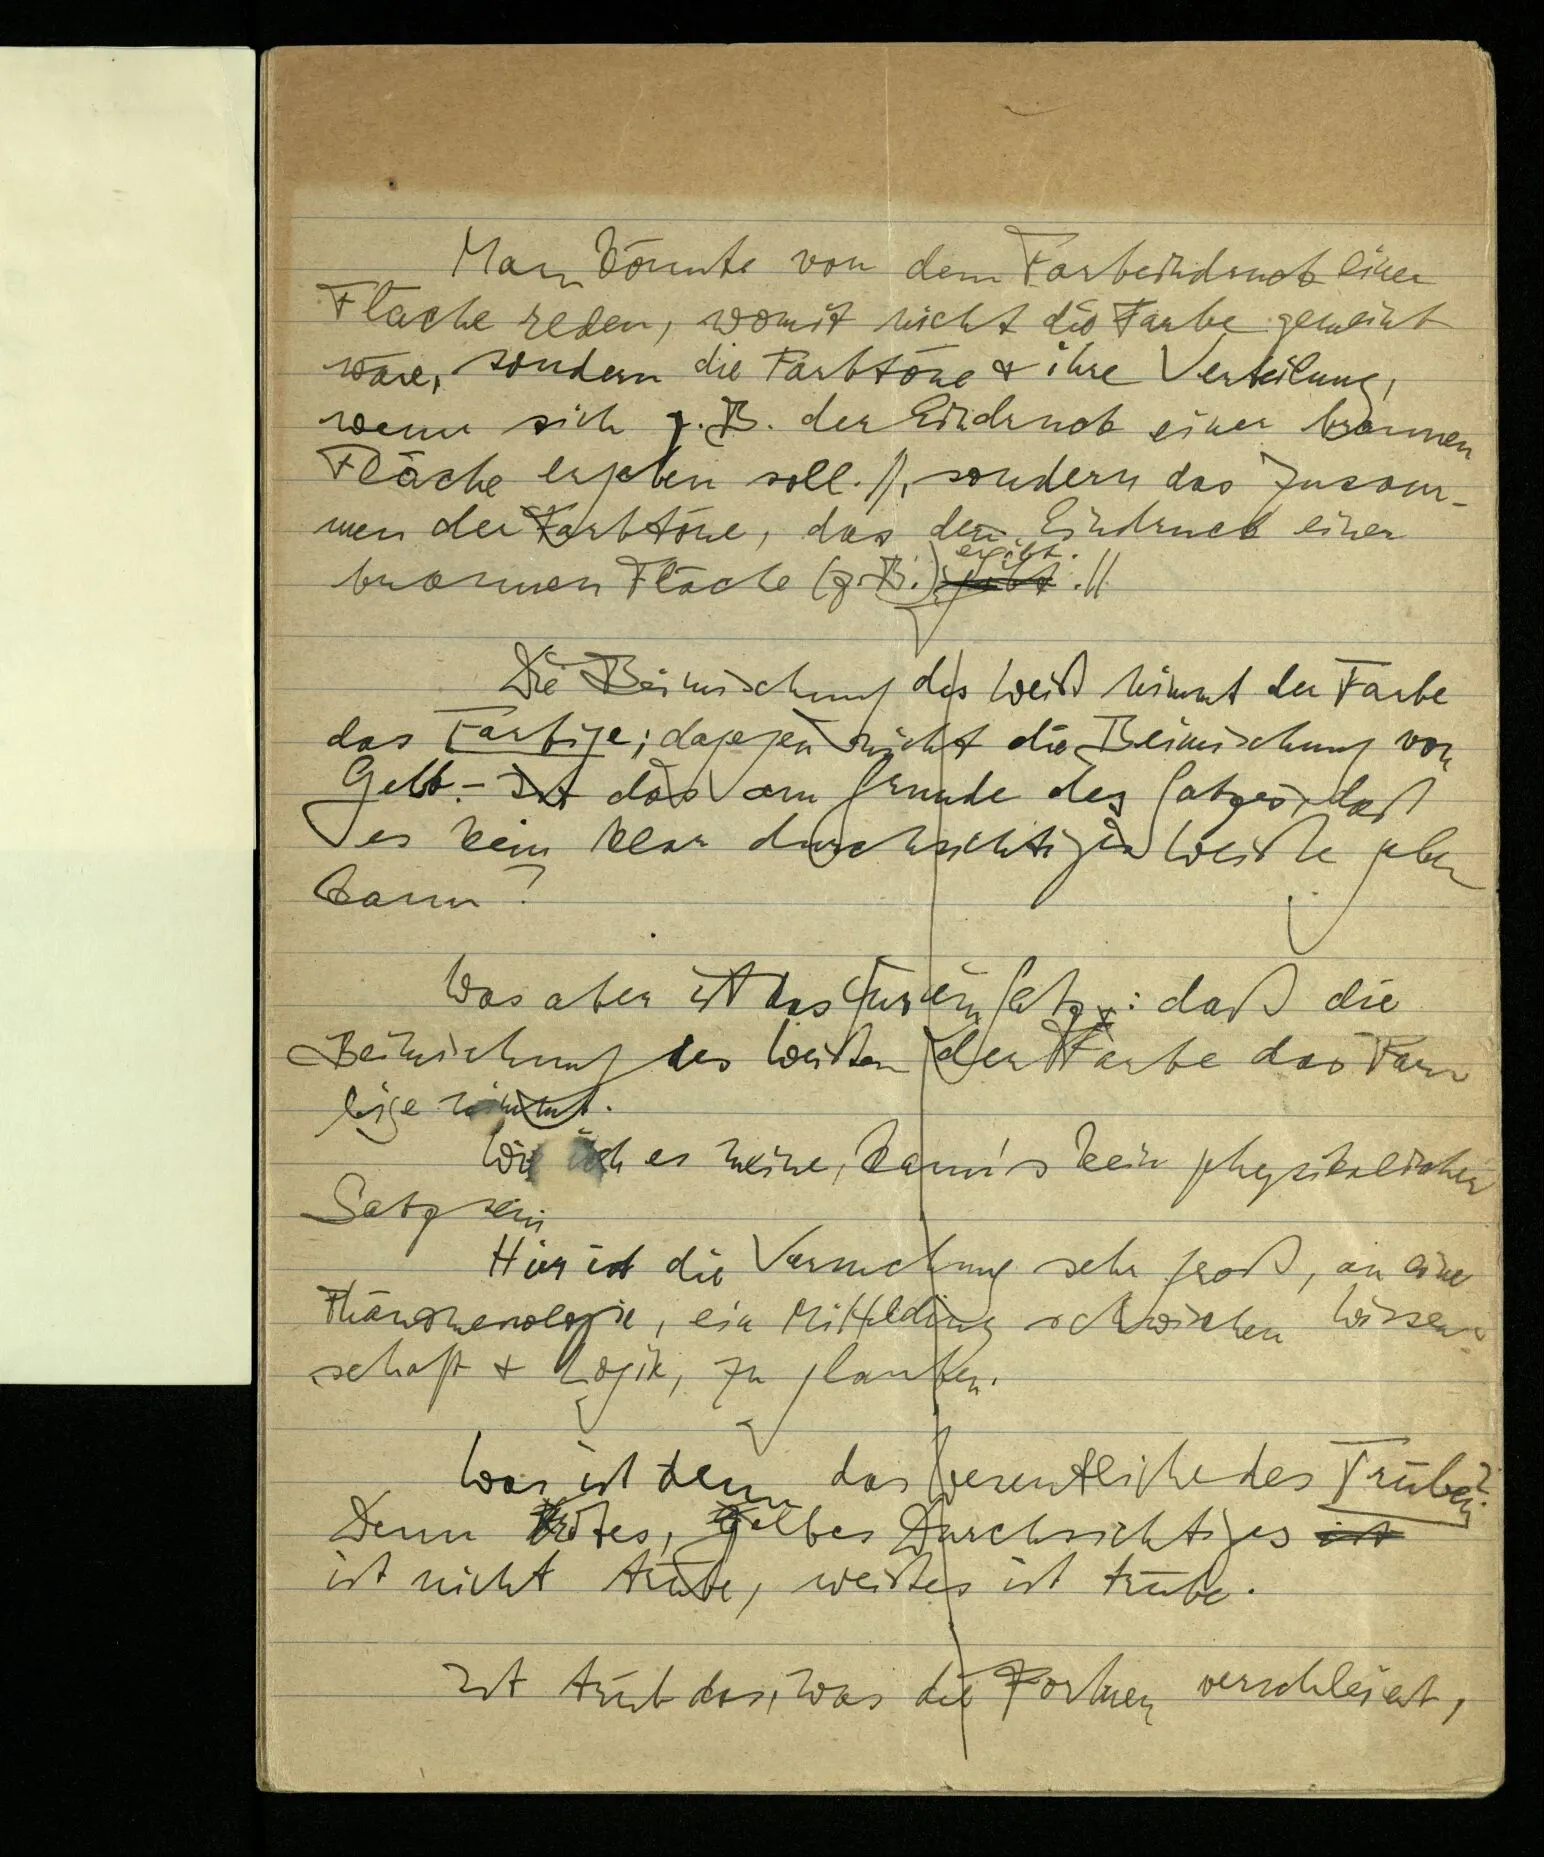 Man könnte von dem Farbeindruck einer
Fläche reden, womit nicht die Farbe gemeint
wäre, sondern die Farbtöne & ihre Verteilung,
wenn sich z.B. der Eindruck einer braunen
Fläche ergeben soll. //, sondern das Zusam-
men der Farbtöne, das den Eindruck einer
braunen Fläche (z.B.) ergibt. //
Die Beimischung des Weiß nimmt der Farbe
das Farbige; dagegen nicht die Beimischung von
Gelb. – Ist das am Grunde des Satzes, daß
es kein klar durchsichtiges Weiß geben
kann?
Was aber ist das für ein Satz: daß die
Beimischung des Weißen der Farbe das Far
bige nimmt.
Wie ich es meine, kann's kein physikalischer
Satz sein
Hier ist die Versuchung sehr groß, an eine
Phänomenologie, ein Mittelding zwischen Wissen-
schaft & Logik, zu glauben.
Was ist denn das Wesentliche des Trüben?
Denn rotes, gelbes Durchsichtiges ist
ist nicht trübe, weißes ist trübe.
Ist trüb das, was die Formen verschleiert,